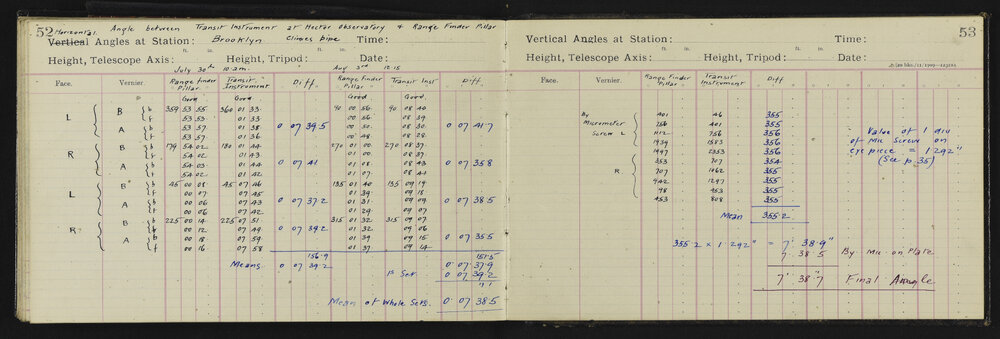 52 Horizontal Angle between Transit Instrument at Hector Observatory & Range Finder Pillar
Vertical Angles at Station: Brooklyn Climes pipe Time:
ft. in. ft. in.
Height, Telescope Axis: Height, Tripod: Date:
July 30th 10 a.m. Aug 3rd 12 15
Face. Vernier. Range finder Pillar Transit Instrument Diff Range finder Pillar Transit Inst Diff
Good Good Good Good
L B b 359 53 55 360 01 33 90 00 56 90 08 40
f 53 53 01 33 00 56 08 39
A b 53 57 01 38 0 07 39.5 00 50 08 30 0 07 41.7
f 53 57 01 36 00 48 08 28
R B b 179 54 02 180 01 44 270 01 00 270 08 37
f 54 02 01 43 01 00 08 37
A b 54 03 01 44 0 07 41 01 08 08 43 0 07 35.8
f 54 02 01 42 01 07 08 41
L B b 45 00 08 45 07 46 135 01 40 135 09 19
f 00 07 07 45 01 39 09 18
A b 00 06 07 43 0 07 37.2 01 31 09 09 0 07 38.5
f 00 06 07 42 01 29 09 07
R B b 225 00 14 225 07 51 315 01 32 315 09 07
f 00 12 07 49 0 07 39.2 01 32 09 06
A b 00 18 07 59 01 39 09 15 0 07 35.5
f 00 16 07 58 01 37 09 14
156.9 151.5
Means 0 07 39.2 0 07 37.9
1st Set 0 07 39.2
Mean of Whole Sets. 0 07 38.5
53
Vertical Angles at Station: Time:
ft. in. ft. in.
Height, Telescope Axis: Height, Tripod: Date:
Face. Range Finder Pillar Transit Instrument Diff
By 401 46 355
Micrometer 756 401 355
Screw L 1112 756 356
1939 1583 356
1997 2353 356
R 353 707 354
707 1062 355
942 1297 355
98 453 355
453 808 355
Mean 355.2
Value of 1 div
of Mic Screw on
eye piece = 1.292"
(See p. 35)
355.2 x 1.292" = 7' 38.9"
7 38.5 By Mic on Plate
7' 38"7 Final Angle